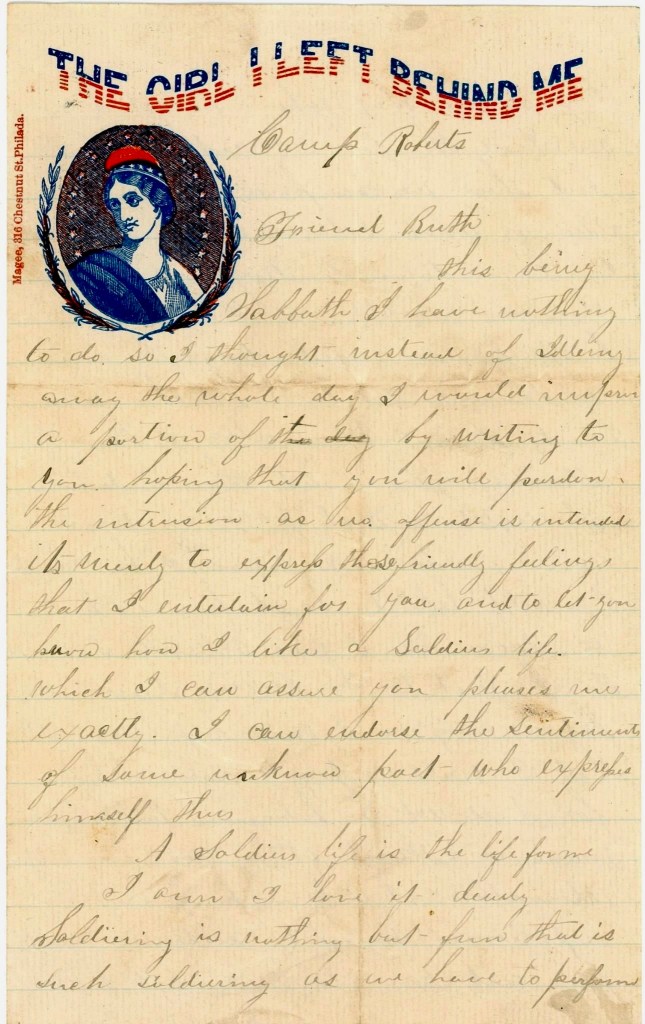 THE GIRL I LEFT BEHIND ME
Magee, 316 Chestnut St. Philada.
Camp Roberts
Friend Ruth
this being
Sabbath I have nothing
to do so I thought instead of Idleing
away the whole day I would improve
a portion of the day by writing to
you. hoping that you will pardon
the intrusion as no offense is intended
its merely to express those friendly feelings
that I entertain for you and to let you
know how I like a Soldiers life.
which I can assure you pleases me
exactly. I can endorse the sentiments
of some unknow poet who expresses
himself thus
A Soldiers life is the life for me
I own I love it dearly
Soldiering is nothing but fun that is
such soldiering as we have to perform